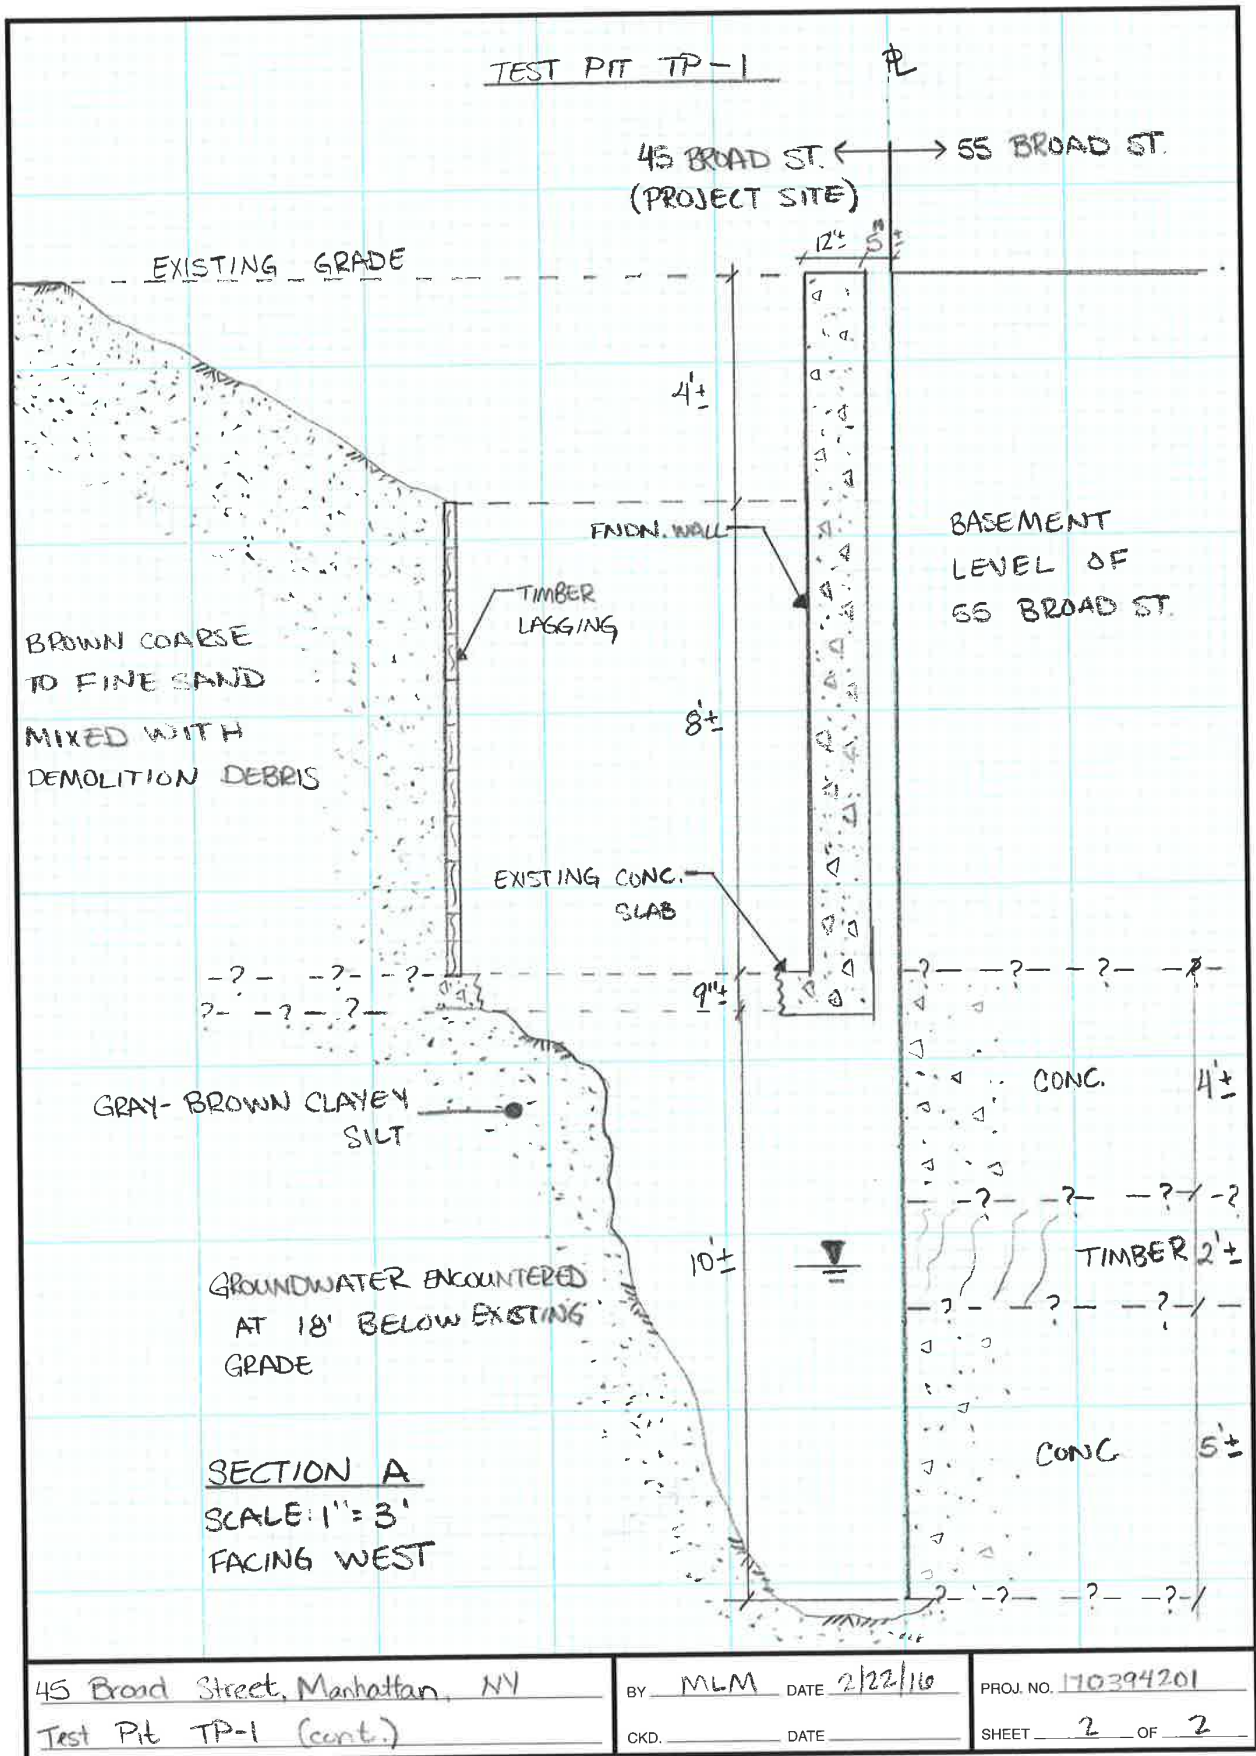 TEST PIT TP-1
PL
45 BROAD ST. ←→ 55 BROAD ST.
(PROJECT SITE)
12"± 5"±
EXISTING GRADE
4'±
FNDN. WALL
BASEMENT
LEVEL OF
55 BROAD ST.
TIMBER
LAGGING
BROWN COARSE
TO FINE SAND
MIXED WITH
DEMOLITION DEBRIS
8'±
EXISTING CONC.
SLAB
-?- -?- -?-
?- -?- ?-
9"±
-?- -?- -?- -?-
CONC.
4'±
GRAY-BROWN CLAYEY
SILT
-?- -?- -?- -?
TIMBER 2'±
10'±
-?- -?- -?-
GROUNDWATER ENCOUNTERED
AT 18' BELOW EXISTING
GRADE
CONC
5'±
SECTION A
SCALE: 1" = 3'
FACING WEST
-?- -?- -?- -?-
45 Broad Street, Manhattan, NY
Test Pit TP-1 (cont.)
BY MLM DATE 2/22/16
CKD. DATE
PROJ. NO. 170394201
SHEET 2 OF 2